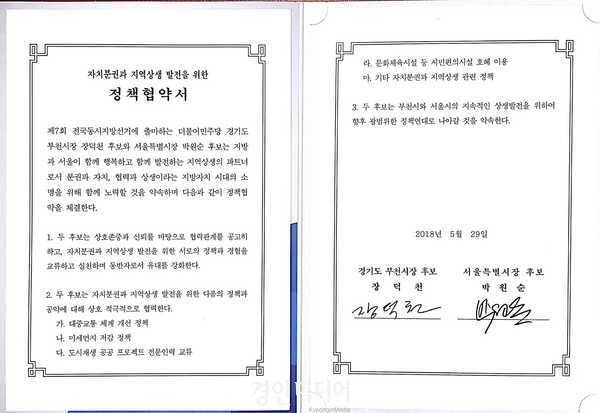 자치분권과 지역상생 발전을 위한
정책협약서
제7회 전국동시지방선거에 출마하는 더불어민주당 경기도
부천시장 장덕천 후보와 서울특별시장 박원순 후보는 지방
과 서울이 함께 행복하고 함께 발전하는 지역상생의 파트너
로서 분권과 자치, 협력과 상생이라는 지방자치 시대의 소
명을 위해 함께 노력할 것을 약속하며 다음과 같이 정책협
약을 체결한다.
1. 두 후보는 상호존중과 신뢰를 바탕으로 협력관계를 공고히
하고, 자치분권과 지역상생 발전을 위한 서로의 정책과 경험을
교류하고 실천하며 동반자로서 유대를 강화한다.
2. 두 후보는 자치분권과 지역상생 발전을 위한 다음의 정책과
공약에 대해 상호 적극적으로 협력한다.
가. 대중교통 체계 개선 정책
나. 미세먼지 저감 정책
다. 도시재생 공공 프로젝트 전문인력 교류
라. 문화체육시설 등 시민편의시설 호혜 이용
마. 기타 자치분권과 지역상생 관련 정책
3. 두 후보는 부천시와 서울시의 지속적인 상생발전을 위하여
향후 광범위한 정책연대로 나아갈 것을 약속한다.
2018년 5월 29일
경기도 부천시장 후보 서울특별시장 후보
장덕천 박원순
장덕천 박원순
경인미디어
KyeonginMedia